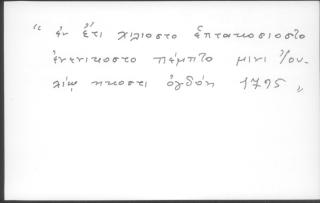 “ ἐν ἔτι χιλιοστο ἑπτακοσιοστο
ἐνενικοστο πέμπτο μινι Ἰου-
λίῳ ηκοστι ὀγδόη 1795 „